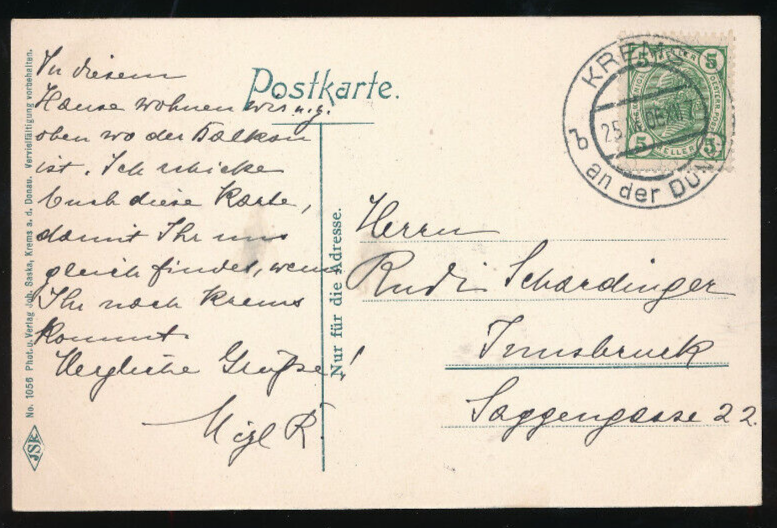 Postkarte.
In diesem
Hause wohnen wir u. z.
oben wo der Balkon
ist. Ich schicke
Euch diese Karte,
damit Ihr uns
gleich findet, wenn
Ihr nach Krems
kommt.
Herzliche Grüße!
Nur für die Adresse.
Herrn
Rudi Schardinger
Innsbruck
Saggengasse 22.
KREMS
an der DON
b
25
5 5
HELLER
5 5
HELLER
No. 1056 Phot. u. Verlag Joh. Saska, Krems a. d. Donau. Vervielfältigung vorbehalten.
JSK